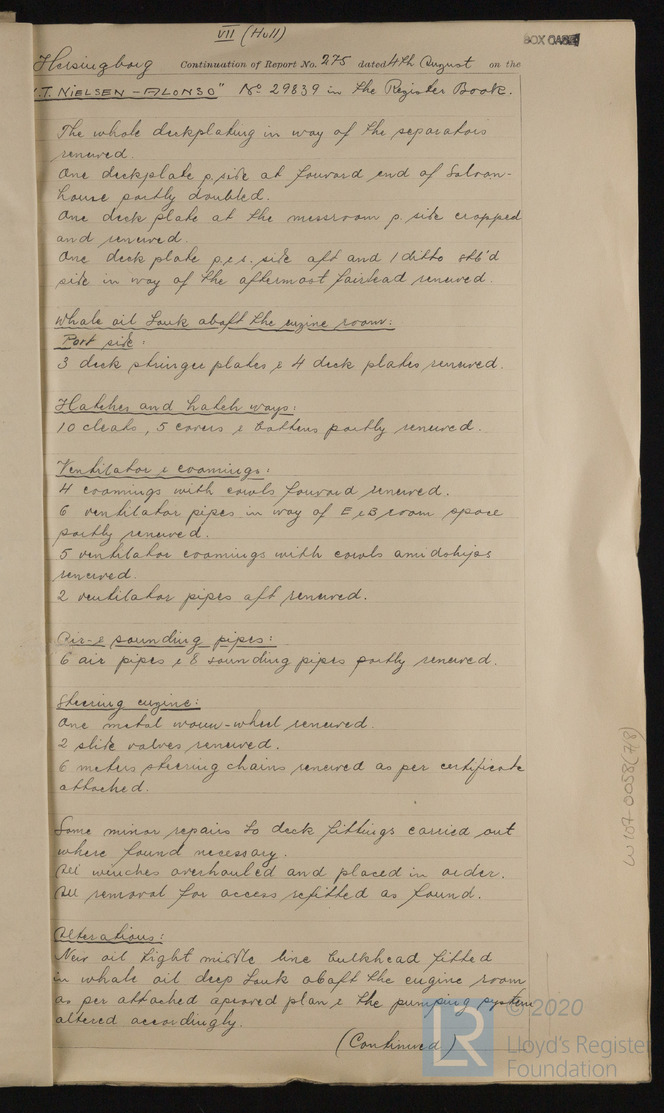 VII (Hull)
BOX CASE
Helsingborg Continuation of Report No. 275 dated 4th August on the
".T. NIELSEN-ALONSO" No 29839 in the Register Book.
The whole deckplating in way of the separators
renewed.
One deckplate p. side at forward end of Saloon-
house partly doubled.
One deck plate at the messroom p. side cropped
and renewed.
One deck plate p.&s. side aft and 1 ditto stb'd
side in way of the aftermost fairlead renewed.
Whale oil tank abaft the engine room:
Port side:
3 deck stringer plates & 4 deck plates renewed.
Hatches and hatch ways:
10 cleats, 5 covers & battens partly renewed.
Ventilator & coamings:
4 coamings with cowls forward renewed.
6 ventilator pipes in way of E & B room space
partly renewed.
5 ventilator coamings with cowls amidships
renewed.
2 ventilator pipes aft renewed.
Air- & sounding pipes:
6 air pipes & 8 sounding pipes partly renewed.
Steering engine:
One metal worm-wheel renewed.
2 slide valves renewed.
6 meters steering chains renewed as per certificate
attached.
Some minor repairs to deck fittings carried out
where found necessary.
All winches overhauled and placed in order.
All removal for access refitted as found.
Alterations:
New oil tight middle line bulkhead fitted
in whale oil deep tank abaft the engine room
as per attached aproved plan & the pumping system
altered accordingly.
(Continued)
W107-0058(7/8)
LR
© 2020
Lloyd's Register
Foundation